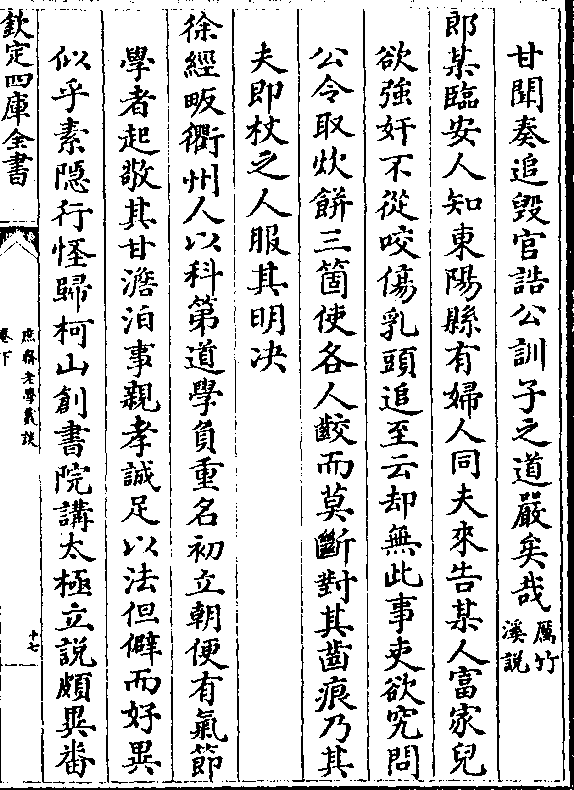 甘聞奏追毁官誥公訓子之道嚴矣哉厲竹
溪説
郎某臨安人知東陽縣有婦人同夫來告某人富家兒
欲強奸不從咬傷乳頭追至云却無此事吏欲究問
公令取炊餅三箇使各人齩而莫斷對其齒痕乃其
夫即杖之人服其明决
徐經畈衢州人以科第道學負重名初立朝便有氣節
學者起敬其甘澹泊事親孝誠足以法但僻而好異
似乎素隠行怪歸柯山創書院講太極立説頗異畨
欽定四庫全書
庶齋老學叢談
卷下
十七